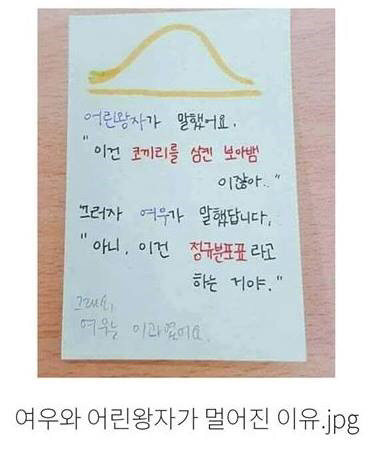 어린왕자가 말했어요.
"이건 코끼리를 삼킨 보아뱀
이잖아.."
그러자 여우가 말했답니다,
"아니, 이건 정규분포표 라고
하는 거야."
그래요,
여우는 이과였어요.
여우와 어린왕자가 멀어진 이유.jpg